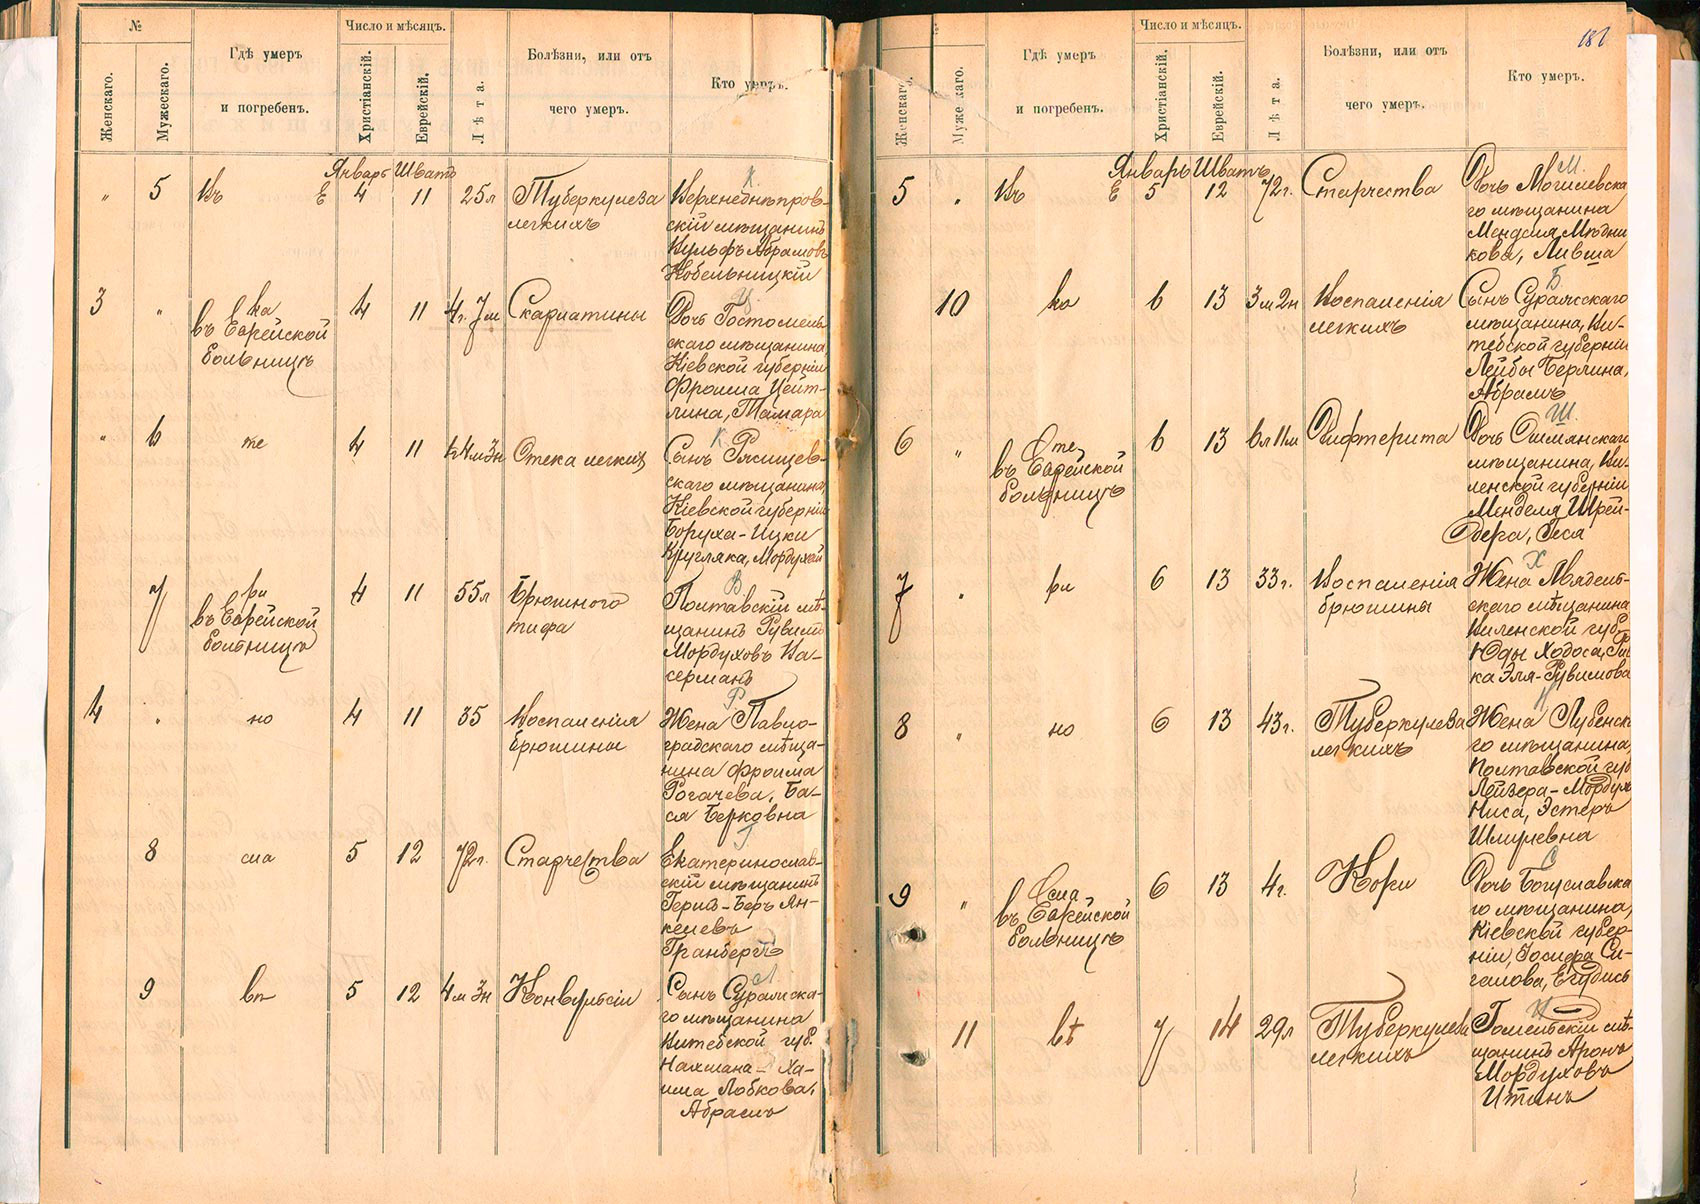 №
Число и мѣсяцъ.
Женскаго.
Мужескаго.
Гдѣ умеръ
и погребенъ.
Христіанскій.
Еврейскій.
Лѣта.
Болѣзни, или отъ
чего умеръ.
Кто умеръ.
Январь Шватъ
" 5 Въ Е 4 11 25 л Туберкулеза
легкихъ
К.
Верхнеднѣпров-
скій мѣщанинъ
Вульфъ Абрамовъ
Кобельницкій
3 " ка
въ Еврейской
больницѣ
4 11 4 г. 7 м Скарлатины
Ц.
Дочь Гостомель
скаго мѣщанина,
Кіевской губерніи
Фроима Цейт-
лина, Тамара
" 6 те 4 11 4 м 3 н Отека легкихъ
К
Сынъ Ржищев-
скаго мѣщанина,
Кіевской губерніи
Боруха-Ицки
Кругляка, Мордухай
7 ри
въ Еврейской
больницѣ
4 11 55 л Брюшного
тифа
В
Полтавскій мѣ-
щанинъ Рувимъ
Мордуховъ Ва-
серманъ
4 " но 4 11 35 Воспаленія
брюшины
Р
Жена Павло-
градскаго мѣща-
нина Фроима
Рогачева, Ба-
ся Берковна
8 сла 5 12 72 г. Старчества
Г
Екатеринослав-
скій мѣщанинъ
Герцъ-Беръ Ян-
келевъ
Гранбергъ
9 вп 5 12 4 м 3 н Конвульсіи
Л
Сынъ Суражска-
го мѣщанина
Витебской губ.
Нахмана-Ха-
има Лобкова,
Абрамъ
Число и мѣсяцъ.
Женскаго.
Мужескаго.
Гдѣ умеръ
и погребенъ.
Христіанскій.
Еврейскій.
Лѣта.
Болѣзни, или отъ
чего умеръ.
Кто умеръ.
Январь Шватъ
5 " Въ Е 5 12 72 г. Старчества
М.
Дочь Могилевска
го мѣщанина
Менделя Мѣдни
кова, Ливша
10 ка 6 13 3 м 2 н Воспаленія
легкихъ
Б
Сынъ Суражскаго
мѣщанина, Ви-
тебской губерніи
Лейбы Берлина,
Абрамъ
6 " Оте
въ Еврейской
больницѣ
6 13 6 л 11 м Дифтерита
Ш.
Дочь Ошмянскаго
мѣщанина, Ви-
ленской губерніи
Менделя Шрей-
дера, Геся
7 " ри 6 13 33 г. Воспаленія
брюшины
Х
Жена Мядель-
скаго мѣщанина
Виленской губ.
Юды Ходоса,
ка Эля-Рувимова
8 " но 6 13 43 г. Туберкулеза
легкихъ
Н
Жена Лубенска
го мѣщанина,
Полтавской губ
Лейзера-Мордух
Ниса, Эстеръ
Шмулевна
9 " Осла
въ Еврейской
больницѣ
6 13 4 г. Кори
С
Дочь Богуславска
го мѣщанина,
Кіевской губер-
ніи, Іосифа Си-
галова, Егудисъ
11 вѣ 7 14 29 л Туберкулеза
легкихъ
И
Гомельскій мѣ-
щанинъ Аронъ
Мордуховъ
Итинъ